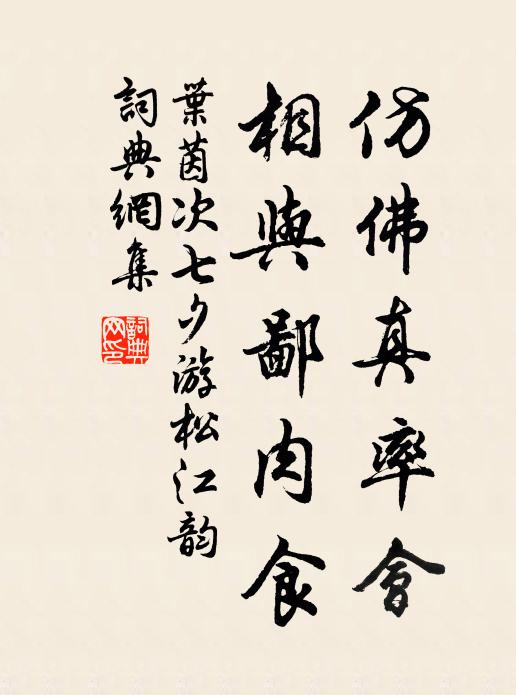 仿佛真率會
相與鄙肉食
葉茵次七夕游松江韵
詞典網集
詞典網印